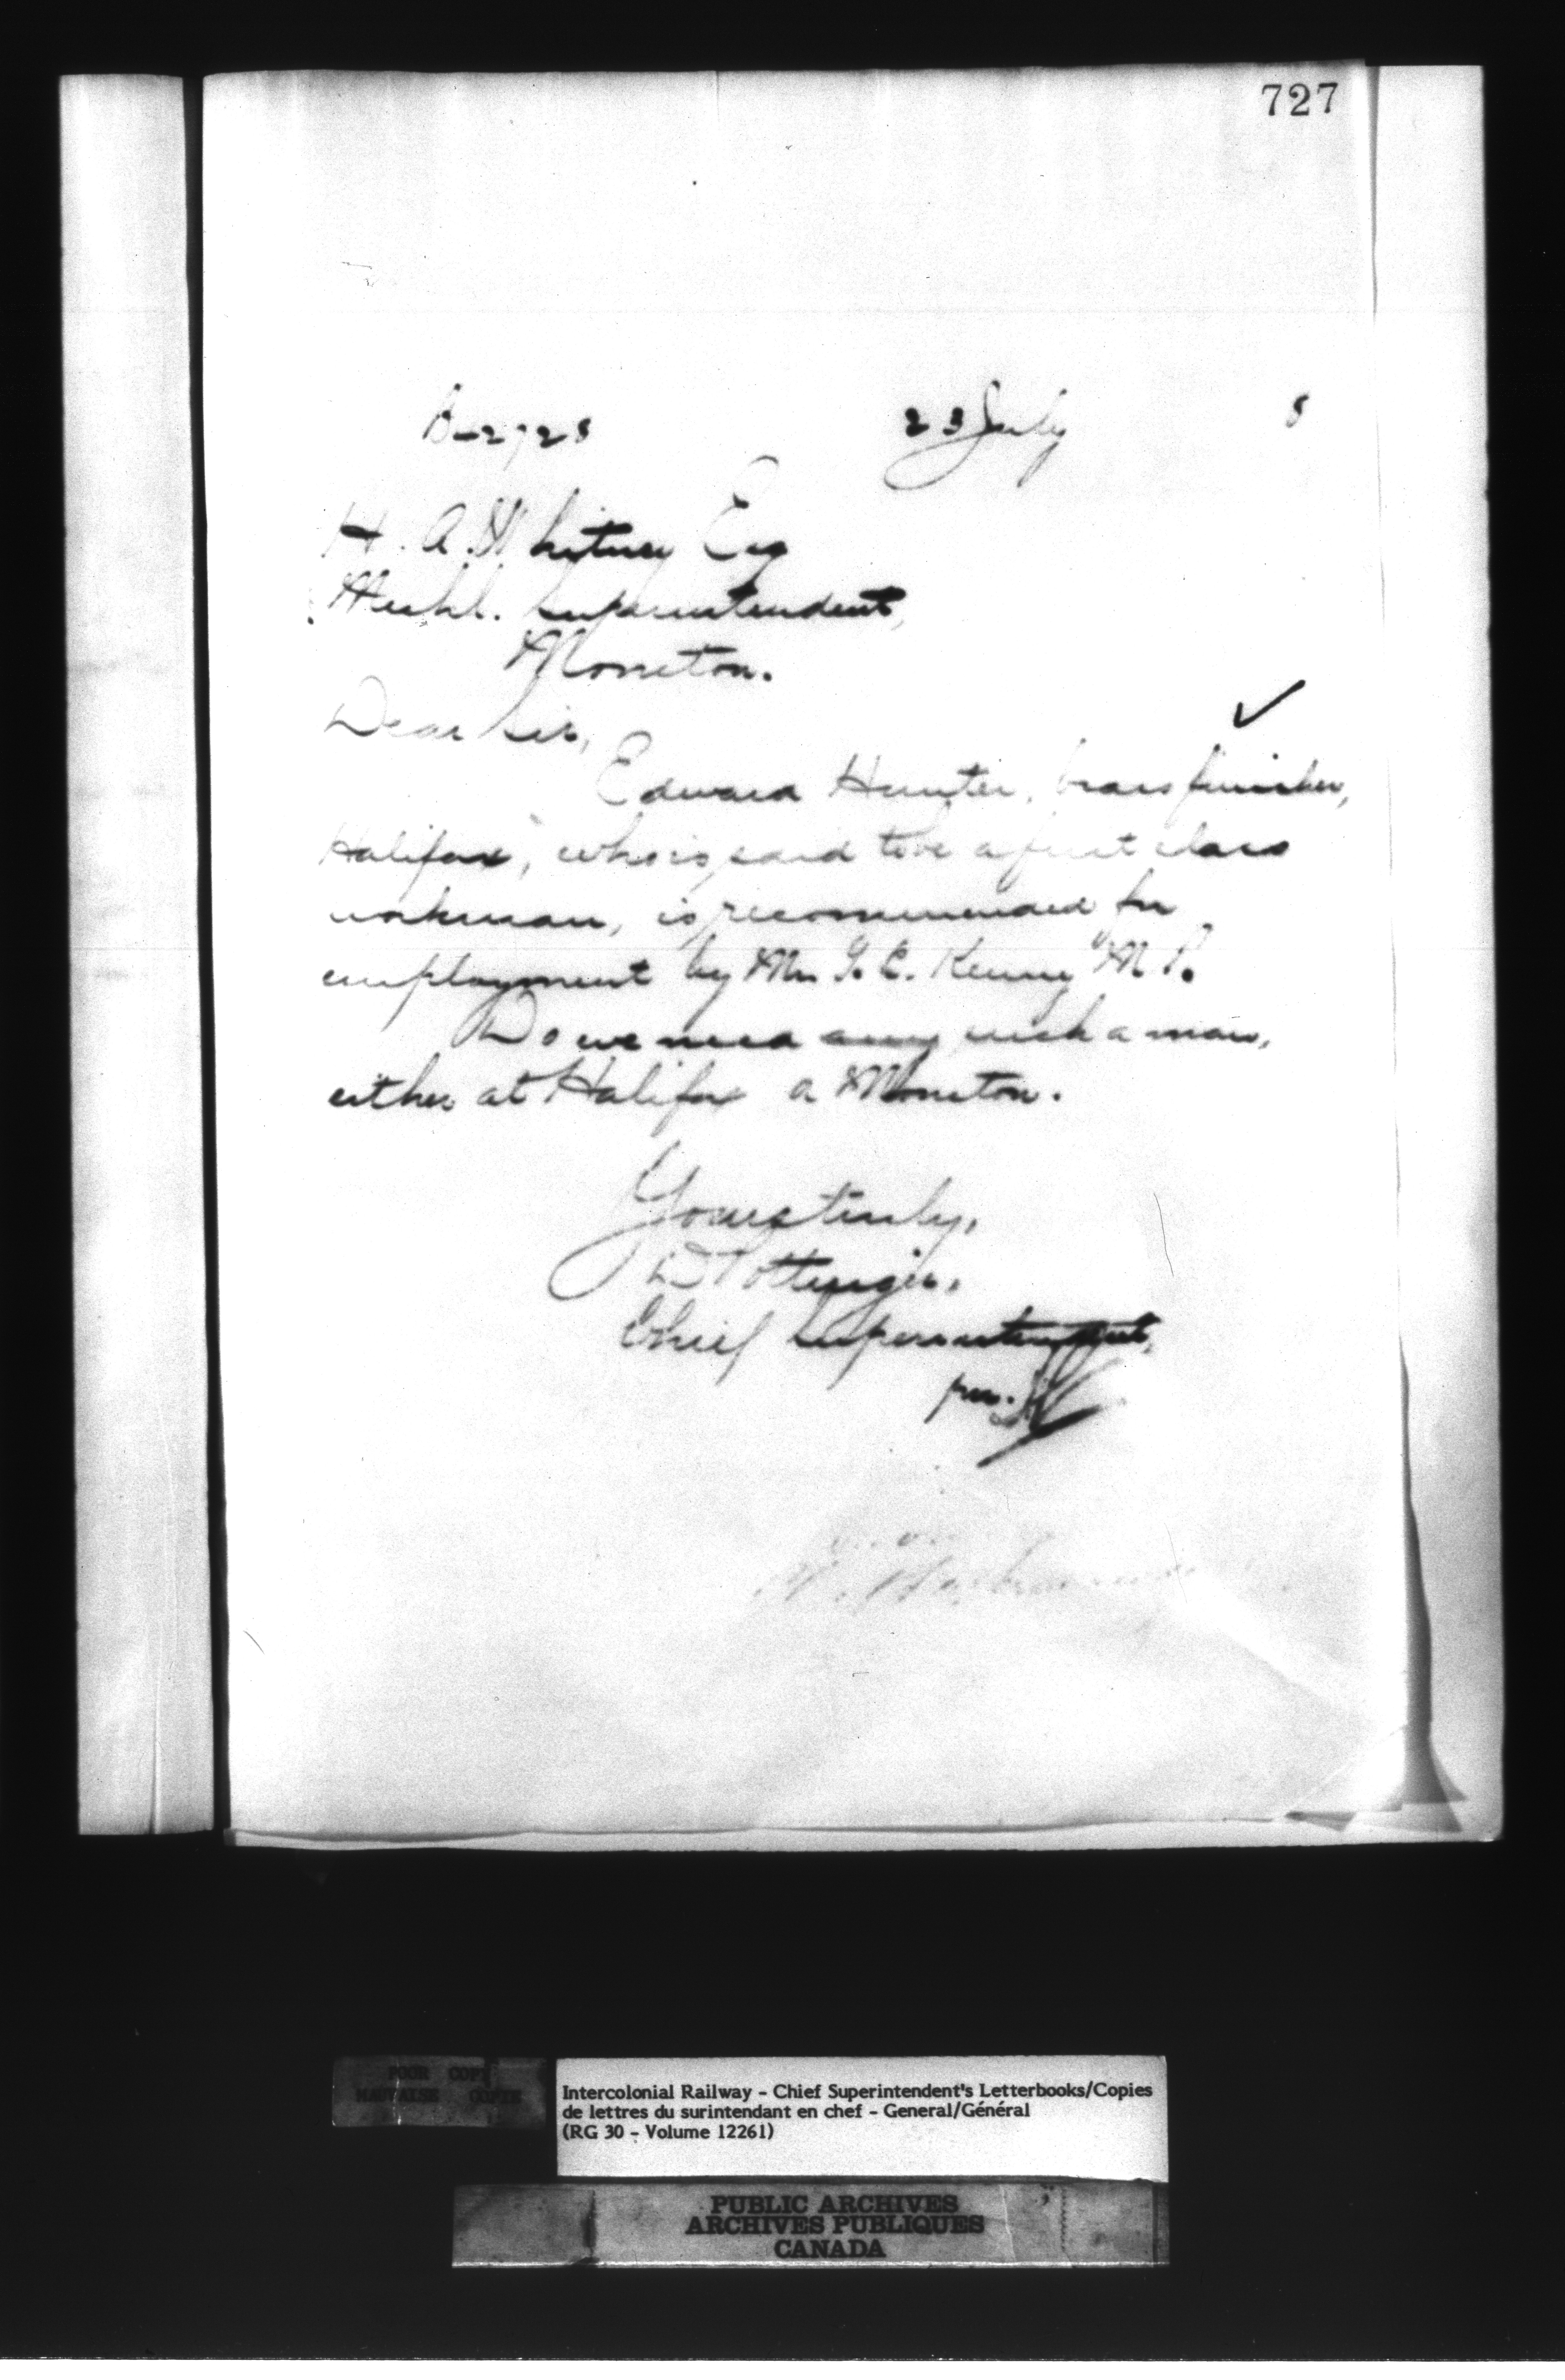 727
B-2728 23 July 8
H. A. Whitney Esq
Mechl. Superintendent,
Moncton.
Dear Sir,
Edward Hunter, brass finisher,
Halifax, who is said to be a first class
workman, is recommended for
employment by Mr T. E. Kenny M P.
Do we need any such a man,
either at Halifax or Moncton.
Yours truly,
D Pottinger,
Chief Superintendent,
per.
POOR COPY
MAUVAISE COPIE
Intercolonial Railway - Chief Superintendent's Letterbooks/Copies
de lettres du surintendant en chef - General/Général
(RG 30 - Volume 12261)
PUBLIC ARCHIVES
ARCHIVES PUBLIQUES
CANADA